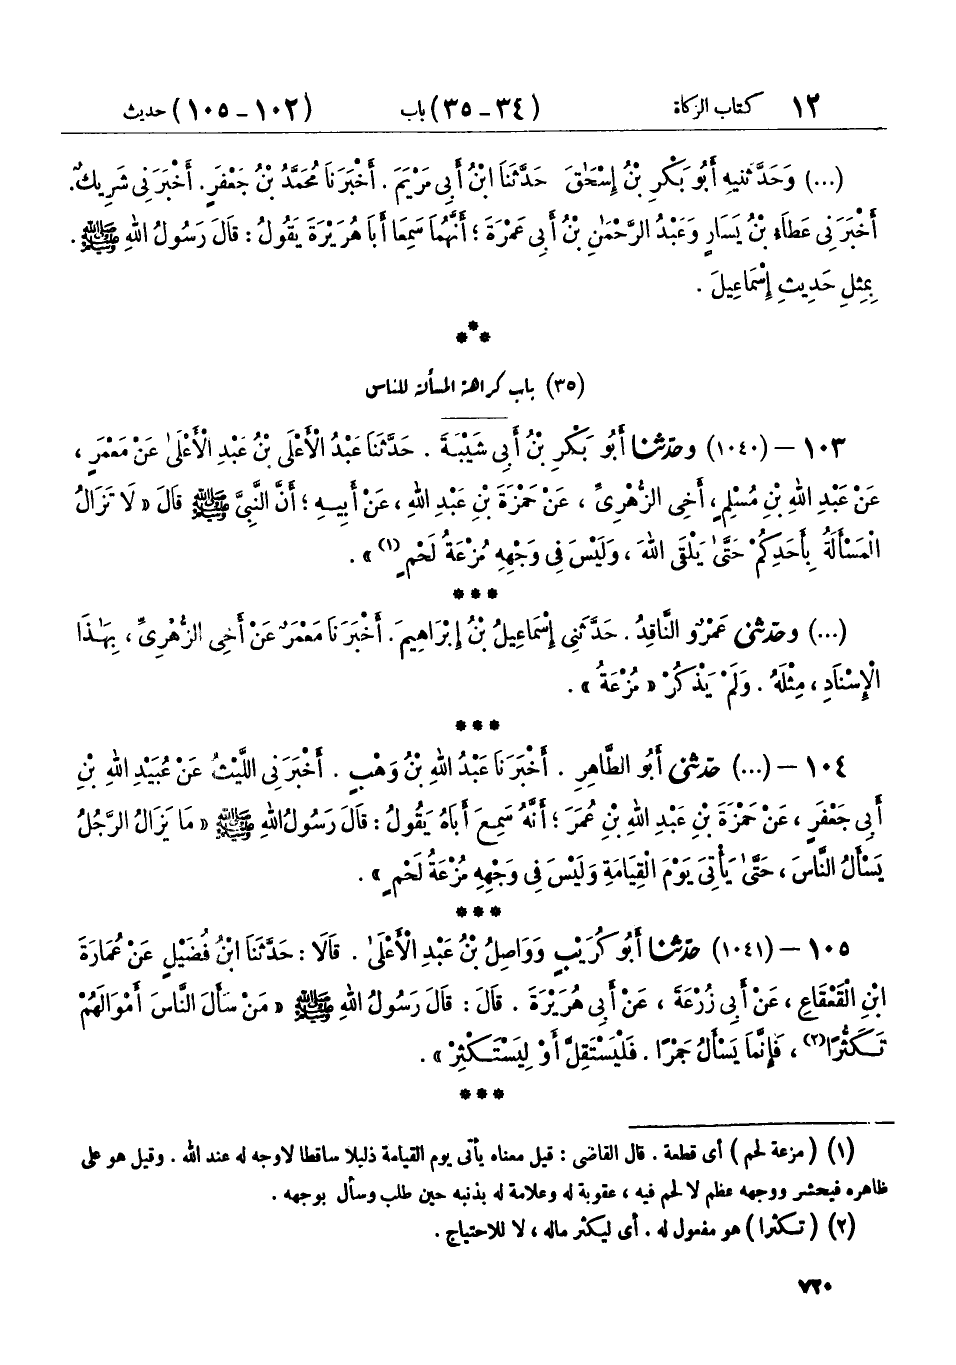 ١٢ كتاب الزكاة (٣٤ - ٣٥) باب (١٠٢ - ١٠٥) حديث
(...) وَحَدَّثَنِيهِ أَبُو بَكْرِ بْنُ إِسْحَٰقَ حَدَّثَنَا ابْنُ أَبِي مَرْيَمَ . أَخْبَرَنَا مُحَمَّدُ بْنُ جَعْفَرٍ . أَخْبَرَنِي شَرِيكٌ .
أَخْبَرَنِي عَطَاءُ بْنُ يَسَارٍ وَعَبْدُ الرَّحْمَٰنِ بْنُ أَبِي عَمْرَةَ ؛ أَنَّهُمَا سَمِعَا أَبَا هُرَيْرَةَ يَقُولُ : قَالَ رَسُولُ اللهِ ﷺ .
بِمِثْلِ حَدِيثِ إِسْمَاعِيلَ .
(٣٥) باب كراهة المسألة للناس
١٠٣ – (١٠٤٠) وحدّثنا أَبُو بَكْرِ بْنُ أَبِي شَيْبَةَ . حَدَّثَنَا عَبْدُ الْأَعْلَى بْنُ عَبْدِ الْأَعْلَىٰ عَنْ مَعْمَرٍ ،
عَنْ عَبْدِ اللهِ بْنِ مُسْلِمٍ، أَخِي الزُّهْرِيِّ ، عَنْ حَمْزَةَ بْنِ عَبْدِ اللهِ ، عَنْ أَبِيهِ ؛ أَنَّ النَّبِيَّ ﷺ قَالَ « لَا تَزَالُ
الْمَسْأَلَةُ بِأَحَدِكُمْ حَتَّىٰ يَلْقَى اللهَ ، وَلَيْسَ فِي وَجْهِهِ مُزْعَةُ لَحْمٍ(١) » .
* * *
(...) وحدّثني عَمْرٌو النَّاقِدُ . حَدَّثَنِي إِسْمَاعِيلُ بْنُ إِبْرَاهِيمَ . أَخْبَرَنَا مَعْمَرٌ عَنْ أَخِي الزُّهْرِيِّ ، بِهَٰذَا
الْإِسْنَادِ ، مِثْلَهُ . وَلَمْ يَذْكُرْ « مُزْعَةُ » .
* * *
١٠٤ – (...) حدّثني أَبُو الطَّاهِرِ . أَخْبَرَنَا عَبْدُ اللهِ بْنُ وَهْبٍ . أَخْبَرَنِي اللَّيْثُ عَنْ عُبَيْدِ اللهِ بْنِ
أَبِي جَعْفَرٍ ، عَنْ حَمْزَةَ بْنِ عَبْدِ اللهِ بْنِ عُمَرَ ؛ أَنَّهُ سَمِعَ أَبَاهُ يَقُولُ : قَالَ رَسُولُ اللهِ ﷺ « مَا يَزَالُ الرَّجُلُ
يَسْأَلُ النَّاسَ ، حَتَّىٰ يَأْتِيَ يَوْمَ الْقِيَامَةِ وَلَيْسَ فِي وَجْهِهِ مُزْعَةُ لَحْمٍ » .
* * *
١٠٥ – (١٠٤١) حدّثنا أَبُو كُرَيْبٍ وَوَاصِلُ بْنُ عَبْدِ الْأَعْلَىٰ . قَالَا : حَدَّثَنَا ابْنُ فُضَيْلٍ عَنْ عُمَارَةَ
ابْنِ الْقَعْقَاعِ ، عَنْ أَبِي زُرْعَةَ ، عَنْ أَبِي هُرَيْرَةَ . قَالَ : قَالَ رَسُولُ اللهِ ﷺ « مَنْ سَأَلَ النَّاسَ أَمْوَالَهُمْ
تَكَثُّرًا(٢) ، فَإِنَّمَا يَسْأَلُ جَمْرًا . فَلْيَسْتَقِلَّ أَوْ لِيَسْتَكْثِرْ » .
* * *
(١) ( مزعة لحم ) أي قطعة . قال القاضي : قيل معناه يأتي يوم القيامة ذليلا ساقطا لا وجه له عند الله . وقيل هو على
ظاهره فيحشر ووجهه عظم لا لحم فيه ، عقوبة له وعلامة له بذنبه حين طلب وسأل بوجهه .
(٢) ( تكثرا ) هو مفعول له . أي ليكثر ماله ، لا للاحتياج .
٧٢٠